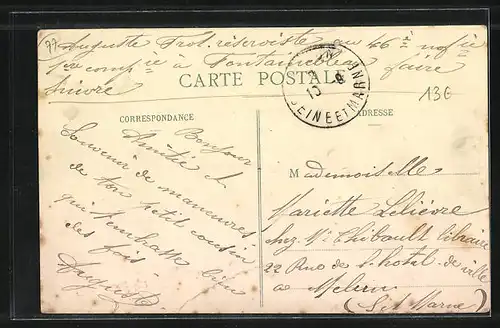 77
Auguste Prot. réserviste au 46è
1ère compie à Fontainebleau faire
suivre
CARTE POSTALE
SEINE ET MARNE
13G
CORRESPONDANCE
ADRESSE
Bonjour
Amitié et
Souvenir de manœuvres
de ton petit cousin
qui t'embrasse bien
des fois
Auguste
Mademoiselle
Mariette Lelièvre
chez Mr Thibault libraire
22 Rue de l'hotel de ville
a Melun
(S et Marne)